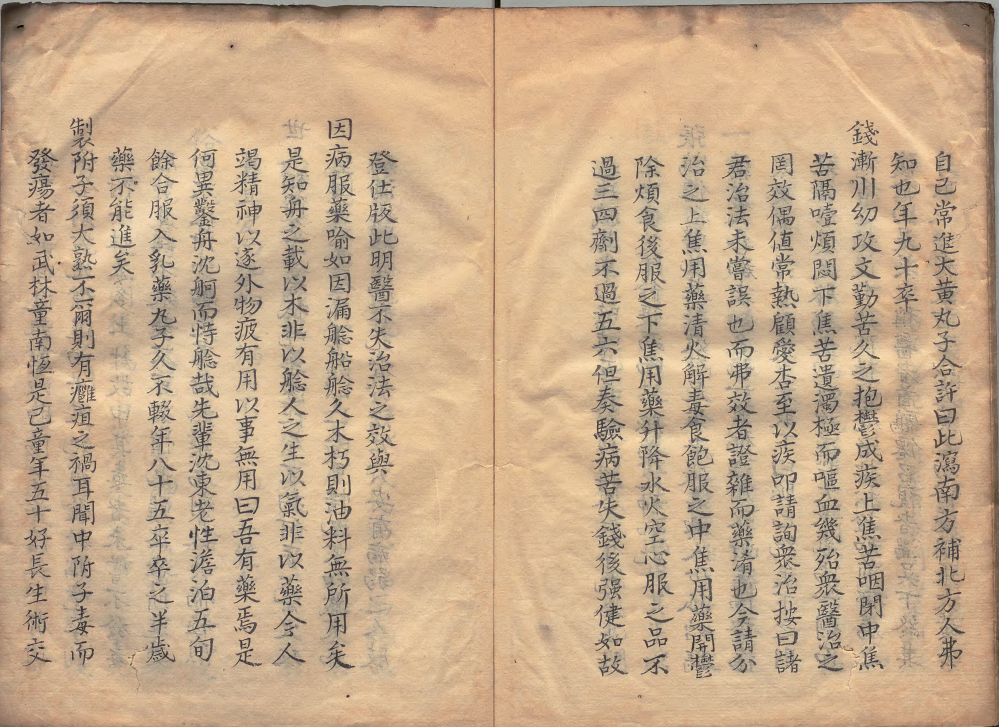 自己常進大黄丸子合許曰此瀉南方補北方人弗
知也年九十卒
錢漸川幼攻文勤苦久之抱鬱成疾上焦苦咽閉中焦
苦隔噎煩悶下焦苦遺濁極而嘔血幾殆衆醫治之
罔效偶值常熟顧愛杏至以疾叩請詢衆治按曰諸
君治法未嘗誤也而弗效者證雜而藥淆也今請分
治之上焦用藥清火解毒食飽服之中焦用藥開鬱
除煩食後服之下焦用藥升降水火空心服之品不
過三四劑不過五六但奏驗病苦失錢後强健如故
登仕版此明醫不失治法之效與
因病服藥喻如因漏艌船艌久木朽則油料無所用矣
是知舟之載以木非以艌人之生以氣非以藥今人
竭精神以逐外物疲有用以事無用曰吾有藥焉是
何異鑿舟沈舸而恃艌哉先輩沈東老性澹泊五旬
餘合服入乳藥丸子久不輟年八十五卒卒之半歲
藥不能進矣
製附子須大熟不爾則有癰疽之禍耳聞中附子毒而
發瘍者如武林童南恆是已童年五十好長生術交